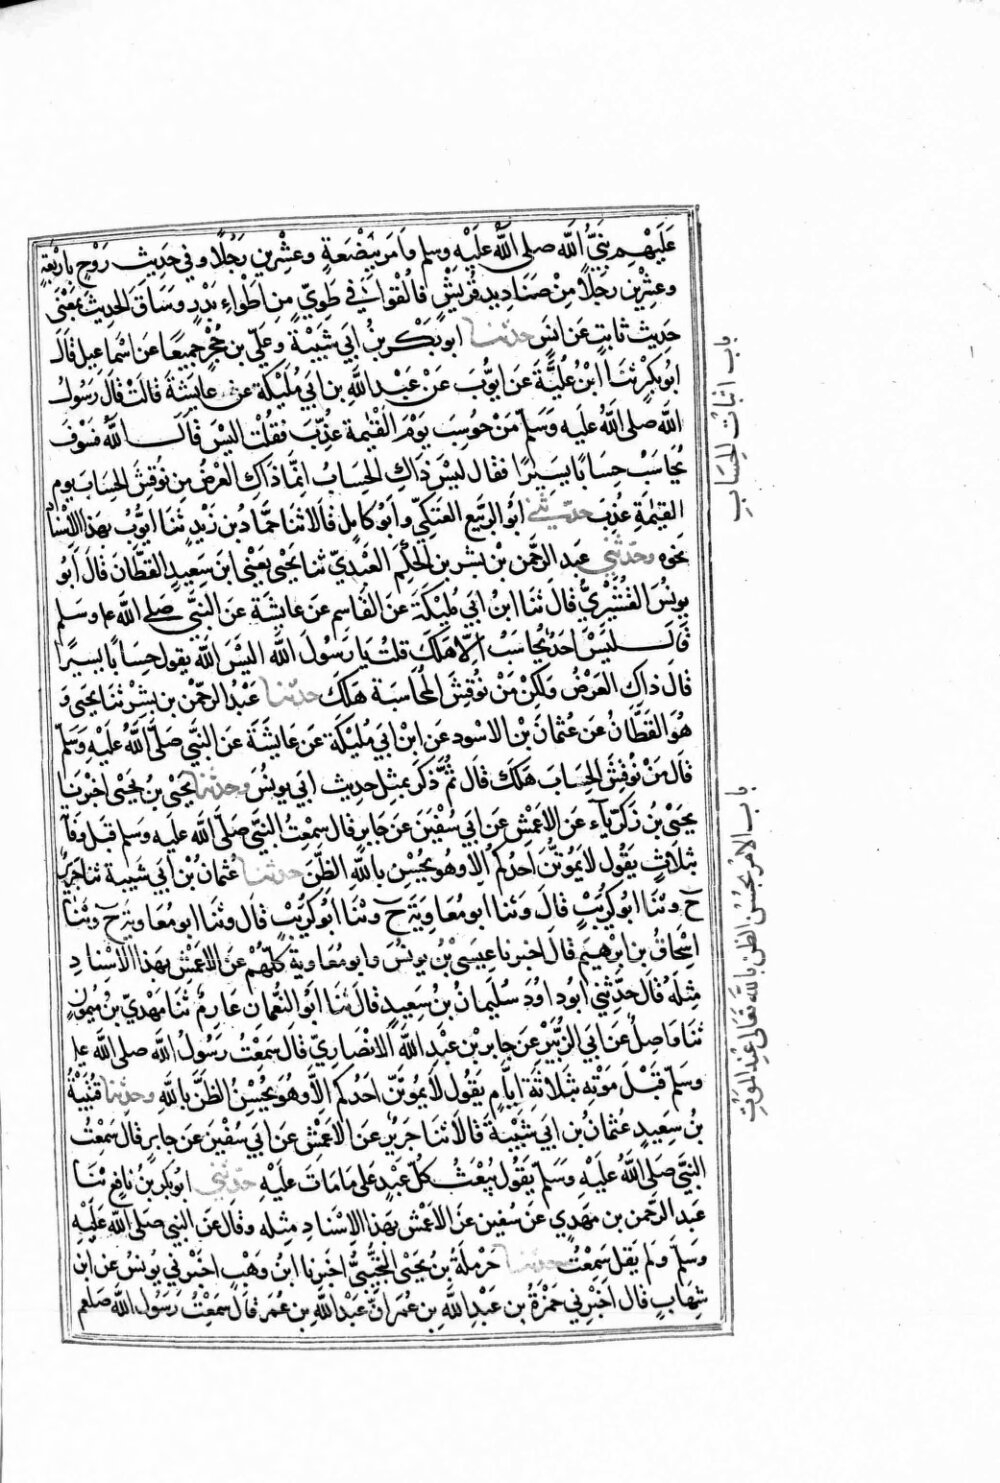 عَلَيْهِم نَبِيُّ الله صلى اللهُ عَلَيْهِ وسلم فاَمَر بِبِضْعَةٍ وعِشْرين رَجُلًا وفي حَدِيث رَوْحٍ باربعةٍ
وعِشْرين رجلًا مِنْ صَنَادِيد قُريْشٍ فالْقوا في طَوِيّ مِن اَطْوَاءِ بَدْرٍ وسَاقَ الحديث بمَعْنٰى
حَدِيث ثَابتٍ عَن انَسٍ حدثنا ابو بَكْر بنُ اَبي شَيْبَةَ وعَلّي بن حُجْرٍ جميعًا عَن اسْماعيل قَالَ
ابُو بَكْرٍ ثنا ابْنُ عُلَيَّةَ عَن ايّوُبَ عَنْ عَبْد اللهِ بن ابي مُلَيْكَة عن عايشَةَ قالَتْ قالَ رَسُولُ
الله صلى اللهُ عليه وَسَلّم مَنْ حوُسِبَ يَوْمَ القيٰمة عُذّبَ فقُلْتُ اليْسَ قَالَ اللهُ فسَوْفَ
يُحَاسَبُ حِسَابًا يَسِيْرًا فقال ليْسَ ذاكِ الحِسَابُ انّمَا ذاكِ العَرْضُ مِن نُوقِشَ الحِسَابَ يوم
القيٰمَةِ عُذِّبَ حدّثنى ابوُ الرّبيع العَتَكيّ وابُو كامِلٍ قالَا ثنا حمَّاد بن زَيْدٍ ثنا ايوّبُ بهَذا الاِسْناد
نحوَه وحدّثني عبد الرَّحمٰن بن بشْر بن الحَكم العَبْدِيّ ثنا يحيٰى يَعْنى ابنَ سَعِيدٍ القَطّان قالَ اَبُو
يونُسَ القُشَيْرِيُّ قالَ ثنَا ابنُ ابي مُليْكَةَ عَنَ القَاسِم عَن عايشَة عن النّبيّ صَلى الله ع وسلم
قَالَ لَيسْ احَدٌ يُحاسَبُ اِلّا هَلَكَ قلتُ يَا رَسُولَ الله اليْسَ الله يقولُ حِسَابًا يسِيرًا
قالَ ذاكِ العَرْضُ ولكِنْ مَنْ نُوقِشَ المُحَاسَبَة هَلَكَ حدّثنا عَبْدُ الرّحمٰن بن بِشْر ثنا يحيٰى وَ
هُوَ القَطَّانُ عَن عُثمَان بْن الاسْود عَن ابْن ابي مُليْكَةَ عن عايشَةَ عَن النّبيّ صَلَّى اللهُ عَلَيْهِ وَسَلّم
قالَ مَنْ نُوقِشَ الحِسَابَ هَلَكَ قَالَ ثُمَّ ذكَرَ بمثل حديث ابي يونُسَ وحدّثنا يحيٰى بن يَحيٰى اخْبرنا
يحيَى بنُ زَكَرِيّاء عَن الاَعمشِ عَن ابي سُفيٰنَ عن جَابرٍ قال سَمِعْتُ النّبيّ صَلّى الله عليه وسلم قبل وفاته
بثلاثٍ يَقُول لَا يَموُتَنَّ اَحَدُكمُ الّا وهُو يحُسِنُ باللهِ الظّنَ حدثنا عُثمَانُ بْن ابي شَيْبَة ثنا جَريرٌ
ح وثنا ابُو كُريْبٍ قالَ وَثنا ابو مُعَاويَةَ ح وثَنا ابُو كُريْبٍ قالَ وثنَا ابو مُعَاويَة ح وثنا
اِسْحاقُ بن ابْرهيمَ قالَ اخبرنا عيسَى بْن يونُسَ وابو مُعَاوية كلّهُمْ عَن الاعمَشِ بهَذا الاِسْناد
مِثلهُ قالَ حدّثني ابُو داوُدَ سُليمانُ بنُ سَعِيدٍ قالَ ثنا اَبو النّعمان عَارِمٌ ثنا مَهْديّ بنُ مَيمونٍ
ثنا وَاصِلٌ عَن ابي الزُّبَيْر عَن جابر بْن عَبْدِ اللهِ الاَنصَارِيّ قالَ سَمِعْتُ رَسُولَ الله صَلى الله عليه
وسَلّمَ قَبْلَ مَوْتِه بثَلاثَةِ ايّامٍ يَقُول لَا يموُتَنّ احَدُكم اِلّا وَهُوَ يحُسِنُ الظَنَّ باللهِ وحدثنا قُتَيْبَةُ
بن سَعيدٍ عُثمانُ بن ابي شَيْبَة قَالَا ثنا جَرِيرٌ عَن الاَعمَشِ عَن ابي سُفْينَ عَن جابرٍ قالَ سَمِعْتُ
النّبيّ صَلَى اللهُ عليْهِ وَسَلّمَ يَقُول يُبْعَثُ كلُّ عَبْدٍ على مَا مَاتَ علَيْهِ حدّثني ابُو بكر بنُ نافِعٍ ثنا
عَبدُ الرّحمٰن بن مَهدِي عَن سُفيٰن عَن الاَعمَش بهَذا الاِسْناد مِثله وقالَ عَن النبي صلى الله عَلَيْهِ
وسَلّم ولَم يقل سَمِعْتُ حدثنا حَرْملَةُ بنُ يحيٰى التُّجِيبيُّ اخبرنا ابنُ وَهْبٍ اخبَرَني يُونسُ عَن ابْن
شِهَابٍ قال اَخبَرَني حَمْزَةُ بن عَبْدِ اللهِ بن عُمَر انّ عَبْدَ اللهِ بن عُمَر قالَ سَمِعْتُ رَسُول الله صَلعم
باب اثبات الحِسَاب
باب الامْر بحُسْن الظن بالله تعَالىٰ عِند المَوْتِ